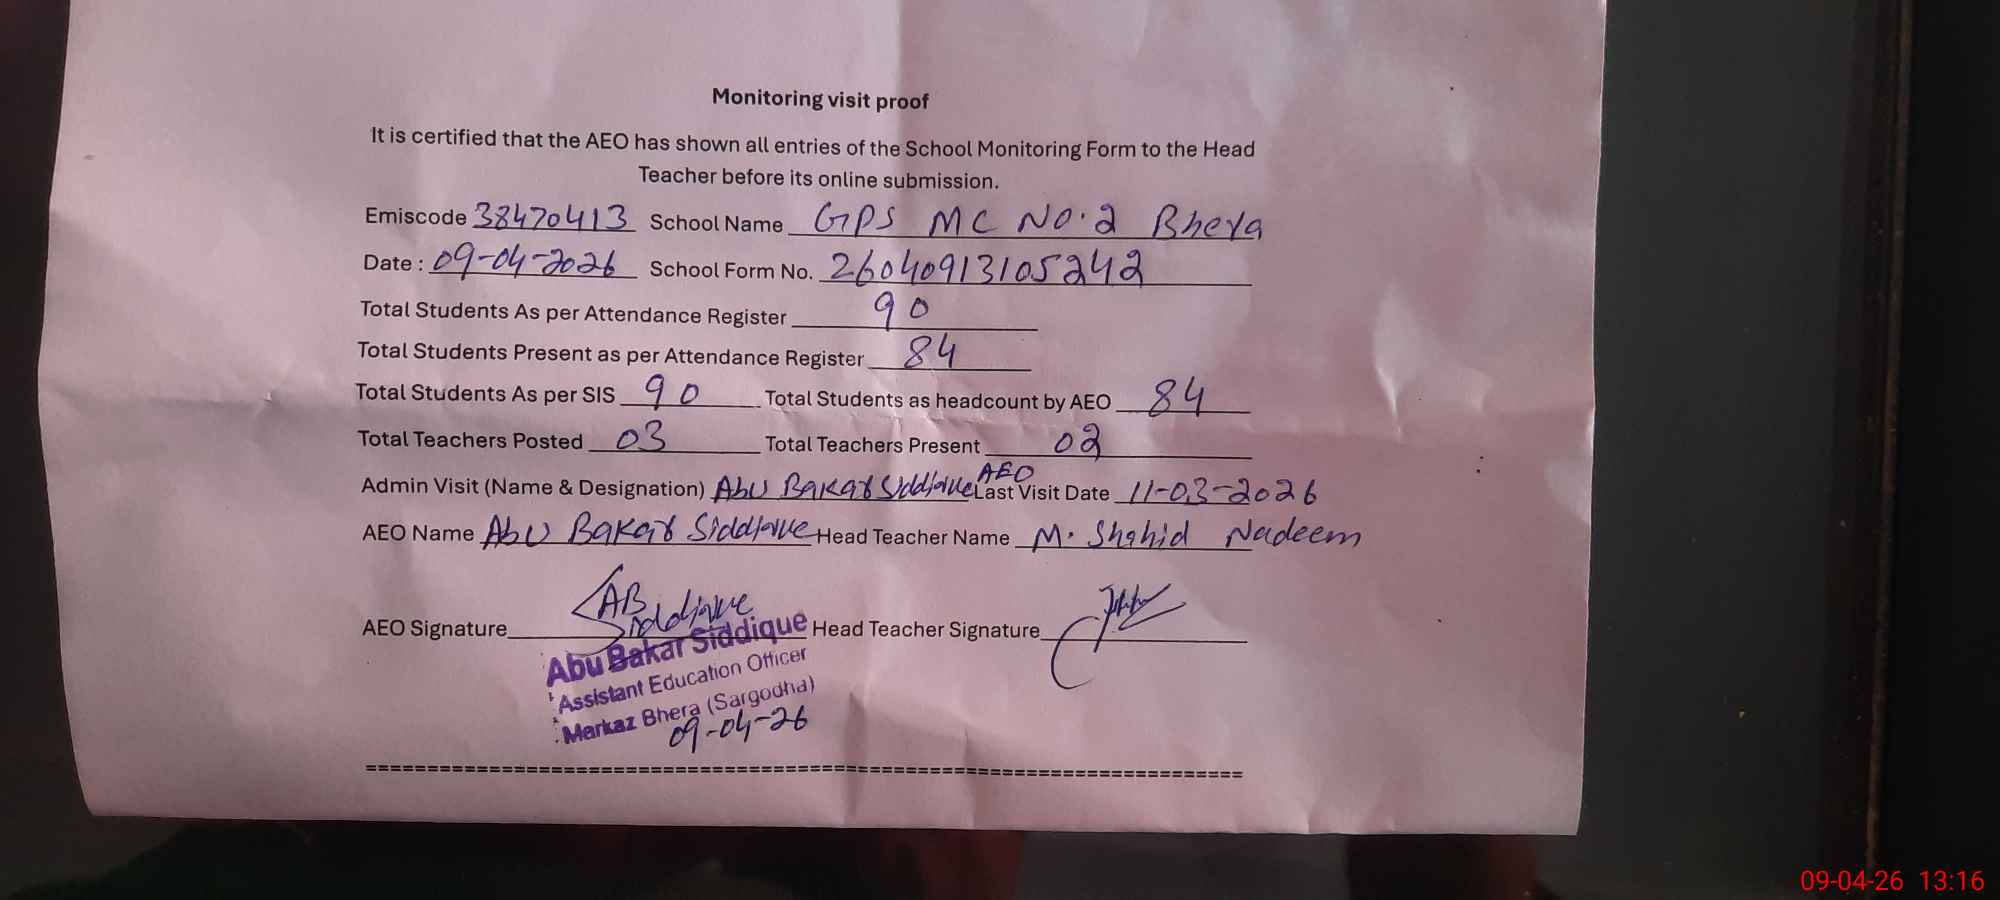 Monitoring visit proof
It is certified that the AEO has shown all entries of the School Monitoring Form to the Head
Teacher before its online submission.
Emiscode 38470413 School Name GPS MC NO.2 Bhera
Date : 09-04-2026 School Form No. 26040913105242
Total Students As per Attendance Register 90
Total Students Present as per Attendance Register 84
Total Students As per SIS 90 Total Students as headcount by AEO 84
Total Teachers Posted 03 Total Teachers Present 02
Admin Visit (Name & Designation) Abu Bakar Siddique AEO Last Visit Date 11-03-2026
AEO Name Abu Bakar Siddique Head Teacher Name M. Shahid Nadeem
AEO Signature AB Siddique Head Teacher Signature
Abu Bakar Siddique
Assistant Education Officer
Markaz Bhera (Sargodha)
09-04-26
==========================================================================
09-04-26 13:16